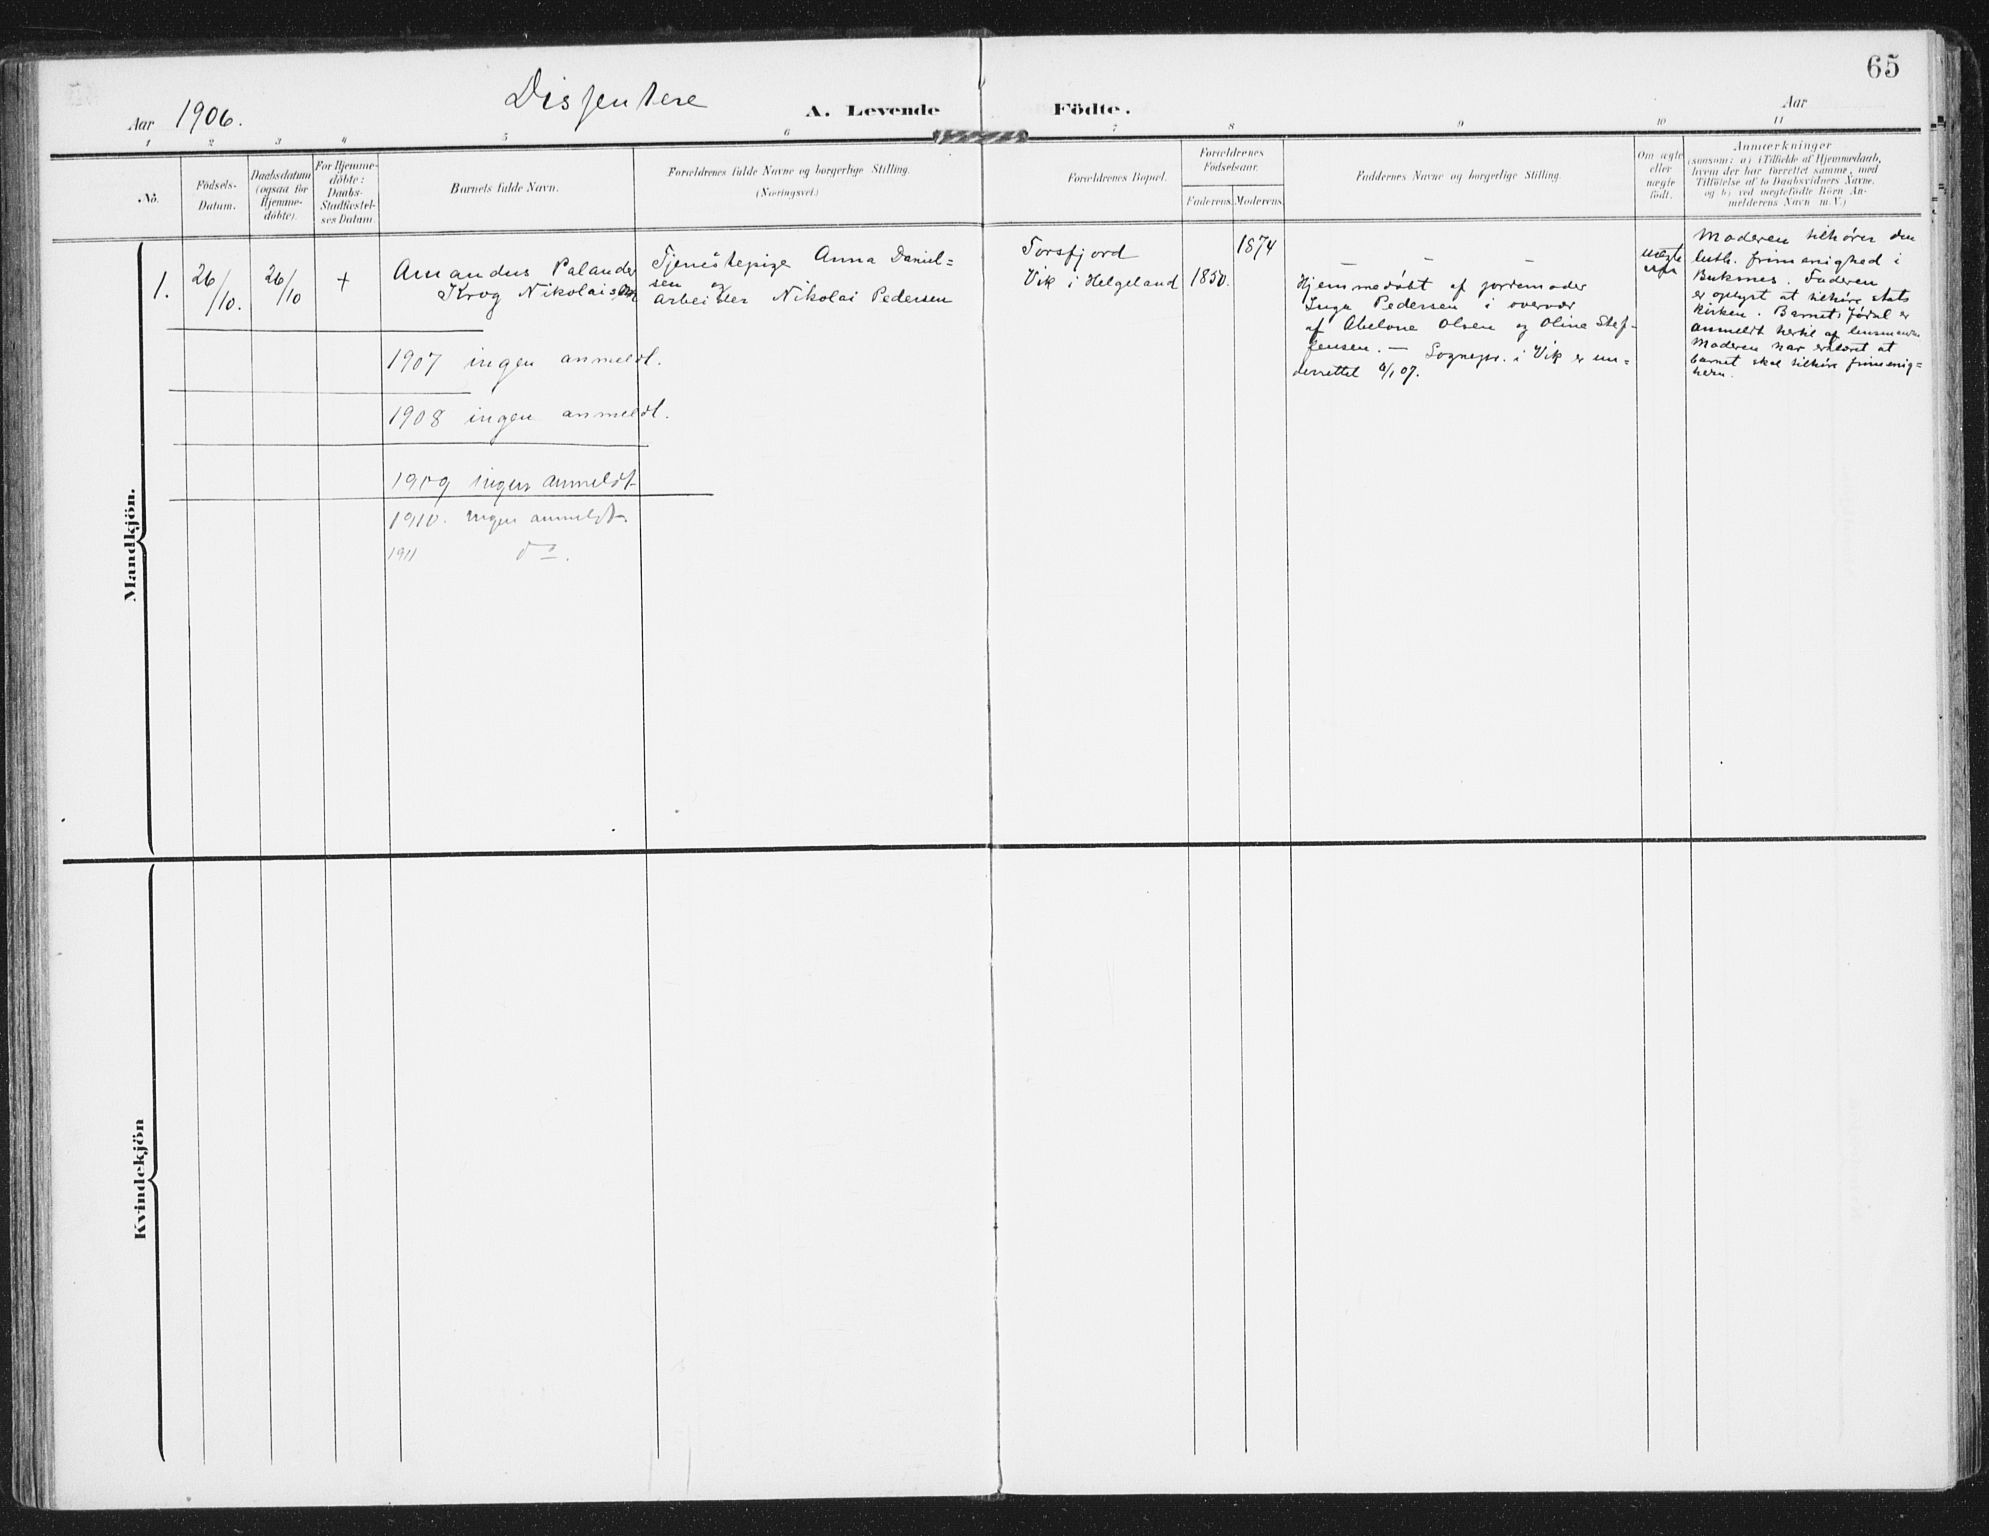 65
Aar 1906.
Dissentere
A. Levende Födte.
Aar
1 2 3 4 5 6 7 8 9 10 11
No.
Födsels-
Datum.
Daabsdatum
(ogsaa for
Hjemme-
döbte).
For Hjemme-
döbte:
Daabs-
Stadfæstel-
ses Datum.
Barnets fulde Navn.
Forældrenes fulde Navne og borgerlige Stilling.
(Næringsvei.)
Forældrenes Bopæl.
Forældrenes
Födselsaar.
Faderens.
Moderens.
Faddernes Navne og borgerlige Stilling.
Om ægte
eller
uægte
födt.
Anmærkninger
(saasom: a) i Tilfælde af Hjemmedaab,
hvem der har forrettet samme, med
Tilföielse af to Daabsvidners Navne,
og b) ved uægtefödte Börn An-
melderens Navn m. V.)
Mandkjön.
1.
26/10.
26/10
+
Amandus Palander
Krog Nikolai
Tjenestepige Anna Daniel=
sen og
Arbeider Nikolai Pedersen
Torsfjord
Vik i Helgeland
1850.
1874
— — —
Hjemmedøbt af jordemoder
Inga Pedersen i overvær
af Abelone Olsen og Oline Stef-
fensen. — Sognepr. i Vik er un=
derrettet 07.
uægte
Moderen tilhører den
luth. frimenighed i
Buksnes. Faderen
er oplyst at tilhøre stats
kirken. Barnets fødsel er
anmeldt hertil af lensmanden
Moderen har erklæret at
barnet skal tilhøre frimenig=
heden.
1907 ingen anmeldt.
1908 ingen anmeldt.
1909 ingen anmeldt
1910. ingen anmeldt.
1911 do.
Kvindekjön